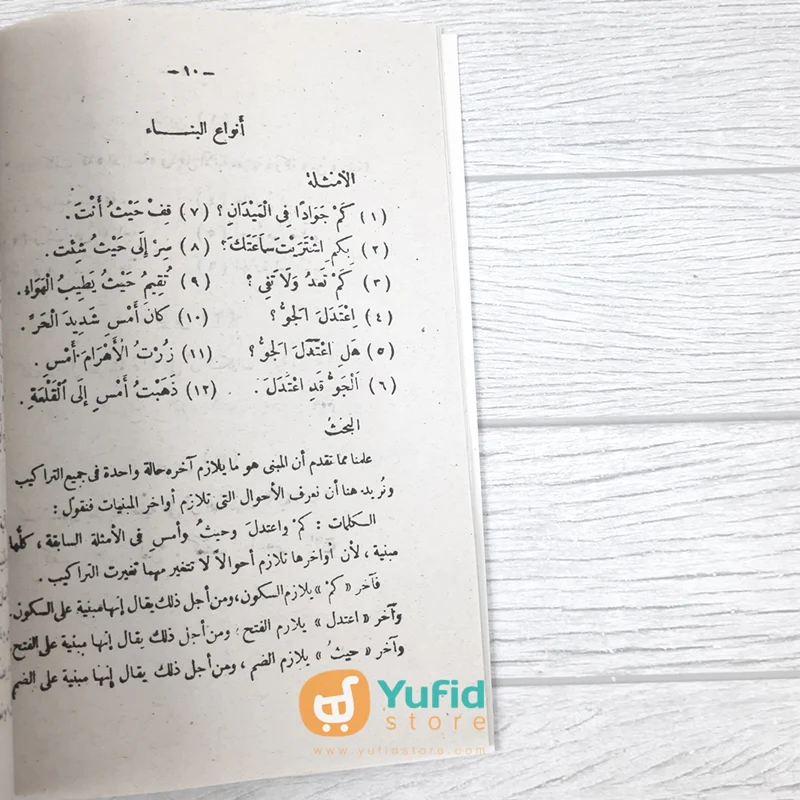 - ١٠ -
أنواع البنـــاء
الأمثلة
(١) كَمْ جَوَادًا فِي الْمَيْدَانِ؟ (٧) قِفْ حَيْثُ أَنْتَ.
(٢) بِكَمِ اشْتَرَيْتَ سَاعَتَكَ؟ (٨) سِرْ إِلَى حَيْثُ شِئْتَ.
(٣) كَمْ تَعِدُ وَلَا تَفِي؟ (٩) نُقِيمُ حَيْثُ يَطِيبُ الْهَوَاءُ.
(٤) اِعْتَدَلَ الجوُّ؟ (١٠) كَانَ أَمْسِ شَدِيدَ الْحَرِّ.
(٥) هَلِ اعْتَدَلَ الجوُّ؟ (١١) زُرْتُ الْأَهْرَامَ أَمْسِ.
(٦) اَلْجَوُّ قَدِ اعْتَدَلَ. (١٢) ذَهَبْتُ أَمْسِ إِلَى الْقَلْعَةِ.
البحثُ
علمنا مما تقدم أن المبنى هو ما يلازم آخره حالة واحدة فى جميع التراكيب
ونُريد هنا أن نعرف الأحوال التى تلازم أواخر المبنيات فنقول:
الكلمات: كمْ واعتدلَ وحيثُ وأمسِ فى الأمثلة السابقة، كلّها
مبنية، لأن أواخرها تلازم أحوالاً لا تتغير مهما تغيرت التراكيب.
فآخر «كمْ» يلازم السكون، ومن أجل ذلك يقال إنها مبنية على السكون
وآخر «اعتدل» يلازم الفتح؛ ومن أجل ذلك يقال إنها مبنية على الفتح
وآخر «حيثُ» يلازم الضم، ومن أجل ذلك يقال إنها مبنية على الضم
Yufid
store
www.yufidstore.com